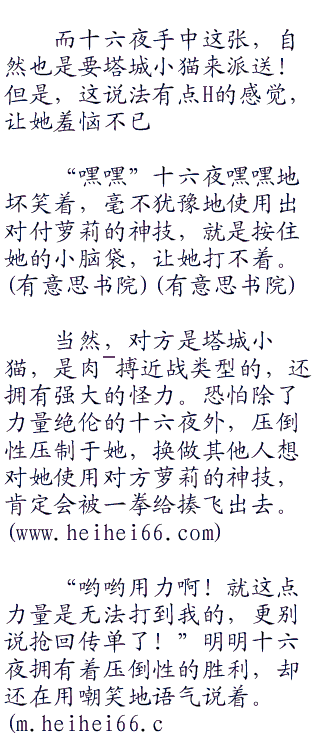 而十六夜手中这张，自
然也是要塔城小猫来派送！
但是，这说法有点H的感觉，
让她羞恼不已
“嘿嘿”十六夜嘿嘿地
坏笑着，毫不犹豫地使用出
对付萝莉的神技，就是按住
她的小脑袋，让她打不着。
(有意思书院)(有意思书院)
当然，对方是塔城小
猫，是肉¯搏近战类型的，还
拥有强大的怪力。恐怕除了
力量绝伦的十六夜外，压倒
性压制于她，换做其他人想
对她使用对方萝莉的神技，
肯定会被一拳给揍飞出去。
(www.heihei66.com)
“哟哟用力啊！就这点
力量是无法打到我的，更别
说抢回传单了！”明明十六
夜拥有着压倒性的胜利，却
还在用嘲笑地语气说着。
(m.heihei66.c